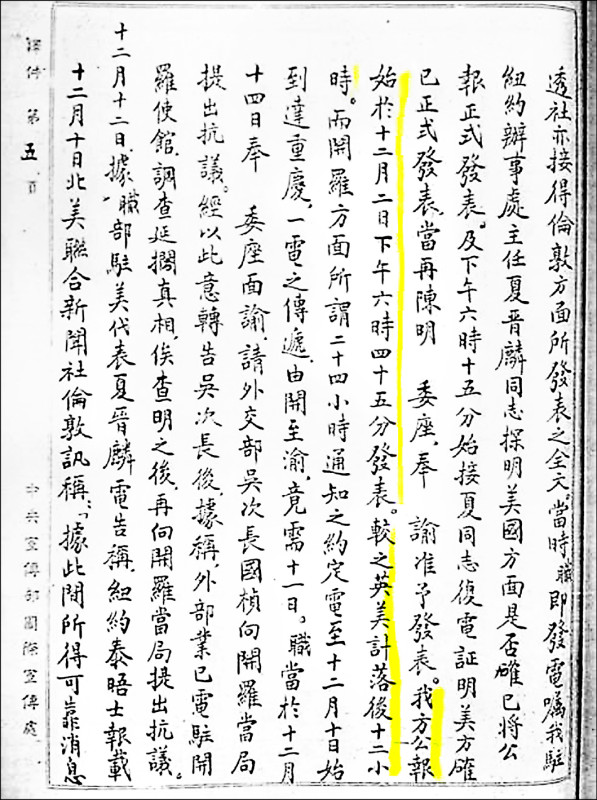 透社亦接得倫敦方面所發表之全文。當時職即發電囑我駐
紐約辦事處主任夏晋麟同志探明美國方面是否確已將公
報正式發表。及下午六時十五分始接夏同志復電証明美方確
已正式發表，當再陳明　委座，奉　諭准予發表。我方公報
始於十二月二日下午六時四十五分發表。較之英美計落後十二小
時。而開羅方面所謂二十四小時通知之約定電至十二月十日始
到達重慶，一電之傳遞，由開至渝，竟需十一日。職當於十二月
十四日奉　委座面諭，請外交部吳次長國楨向開羅當局
提出抗議。經以此意轉告吳次長後，據稱，外部業已電駐開
羅使館，調查延擱真相，俟查明之後，再向開羅當局提出抗議。
十二月十二日，據職部駐美代表夏晋麟電告稱，紐約泰晤士報載
十二月十日北美聯合新聞社倫敦訊稱：「據此間所得可靠消息
第五頁
中央宣傳部國際宣傳處